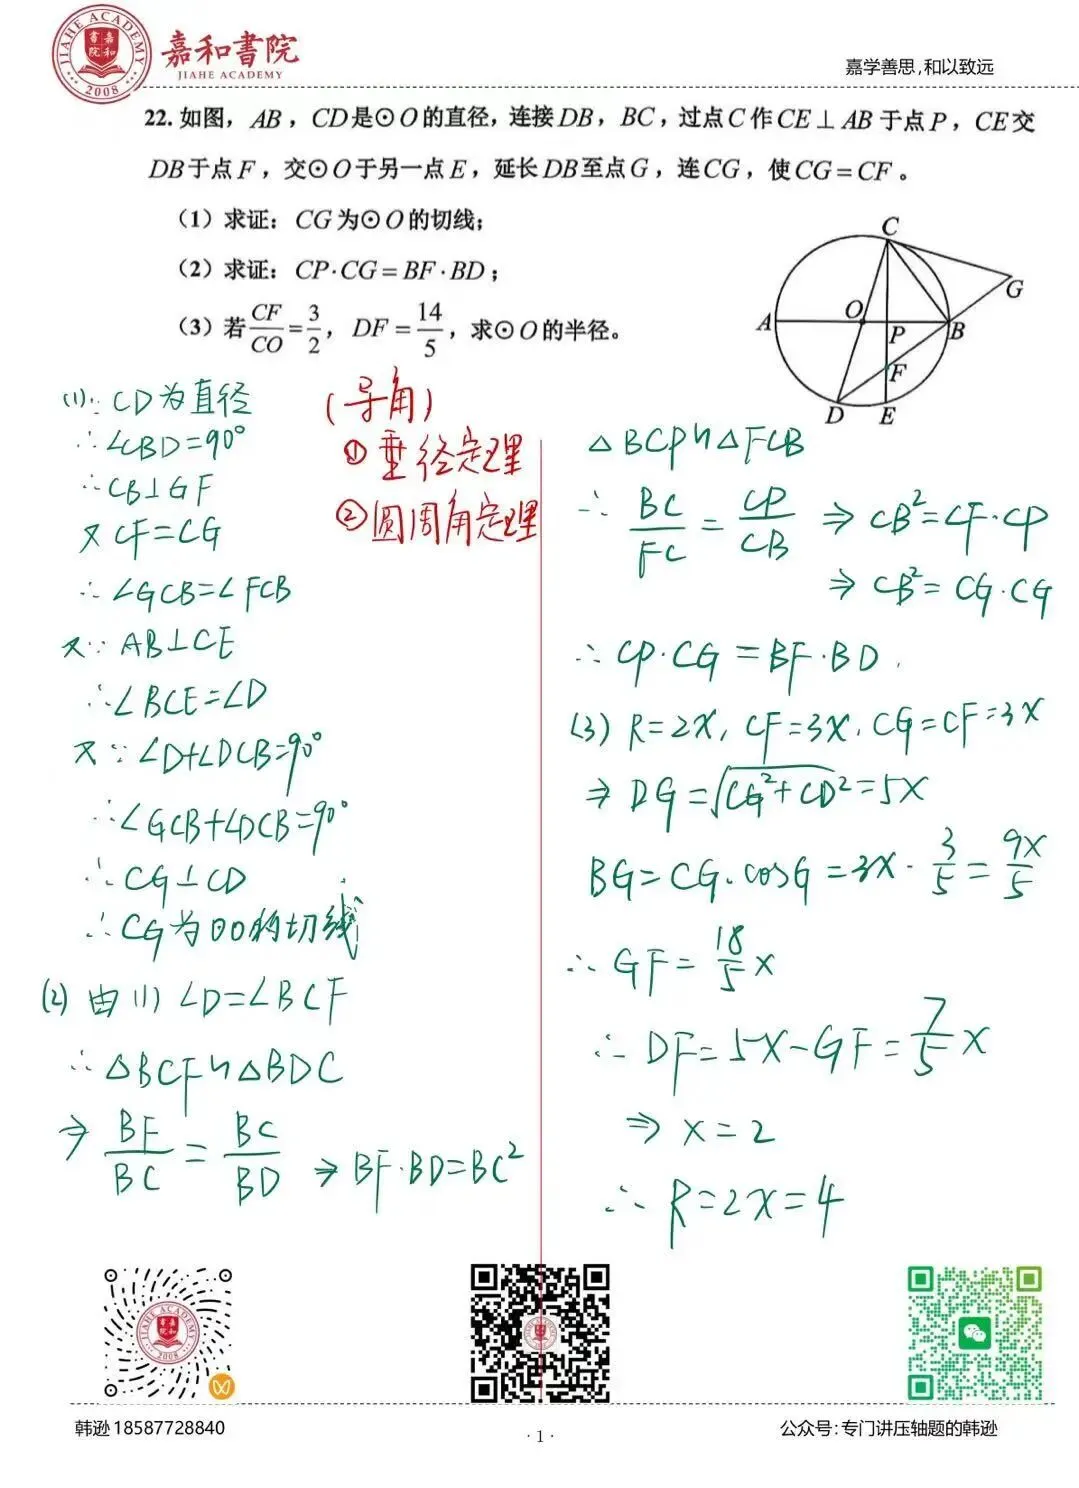 JIAHE ACADEMY
嘉和書院
2008
嘉和書院
JIAHE ACADEMY
嘉学善思,和以致远
22. 如图, AB, CD是⊙O的直径, 连接DB, BC, 过点C作CE⊥AB于点P, CE交
DB于点F, 交⊙O于另一点E, 延长DB至点G, 连CG, 使CG=CF。
(1) 求证: CG为⊙O的切线;
(2) 求证: CP·CG=BF·BD;
(3) 若CF/CO=3/2, DF=14/5, 求⊙O的半径。
C
G
A
O
P
B
F
D
E
(导角)
① 垂径定理
② 圆周角定理
(1) ∵ CD为直径
∴∠CBD=90°
∴CB⊥GF
又 CF=CG
∴∠GCB=∠FCB
又∵ AB⊥CE
∴∠BCE=∠D
又∵∠D+∠DCB=90°
∴∠GCB+∠DCB=90°
∴CG⊥CD
∴CG为⊙O的切线
(2) 由(1) ∠D=∠BCF
∴△BCF∽△BDC
⇒ BF/BC = BC/BD ⇒ BF·BD=BC²
△BCP∽△FCB
∴ BC/FC = CP/CB ⇒ CB²=CF·CP
⇒ CB²=CG·CG
∴ CP·CG=BF·BD.
(3) R=2x, CF=3x, CG=CF=3x
⇒ DG=√(CG²+CD²)=5x
BG=CG·cosG=3x·3/5=9x/5
∴ GF=18/5x
∴ DF=5x-GF=7/5x
⇒ x=2
∴ R=2x=4
JIAHE ACADEMY
嘉和書院
2008
韩逊 18587728840
· 1 ·
公众号:专门讲压轴题的韩逊